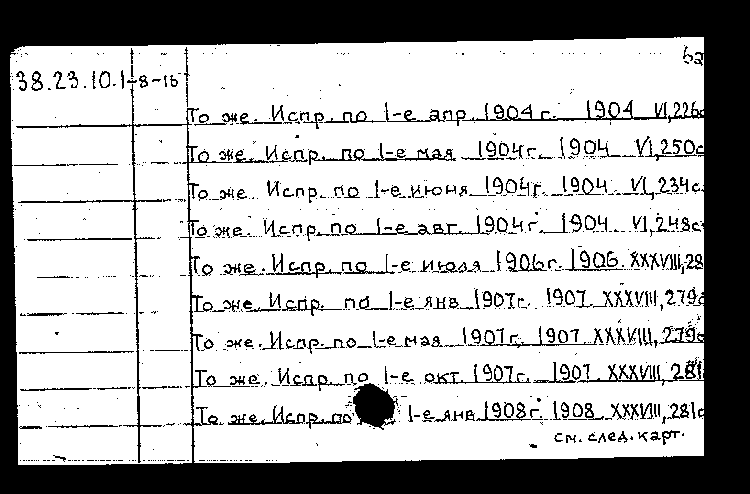 62
38.23.10.1-8-15
То же. Испр. по 1-е апр. 1904 г. 1904 VI,226с
То же. Испр. по 1-е мая 1904г. 1904 VI,250с
То же Испр. по 1-е июня 1904г. 1904 VI,234с.
То же. Испр. по 1-е авг. 1904г. 1904 VI,248с
То же. Испр. по 1-е июля 1906г. 1906 XXXVIII,28
То же. Испр. по 1-е янв 1907г. 1907 XXXVIII,279с
То же. Испр. по 1-е мая 1907г. 1907 XXXVIII,279с
То же. Испр. по 1-е окт. 1907г. 1907 XXXVIII,281
То же. Испр. по 1-е янв 1908г. 1908 XXXVIII,281с
см. след. карт.